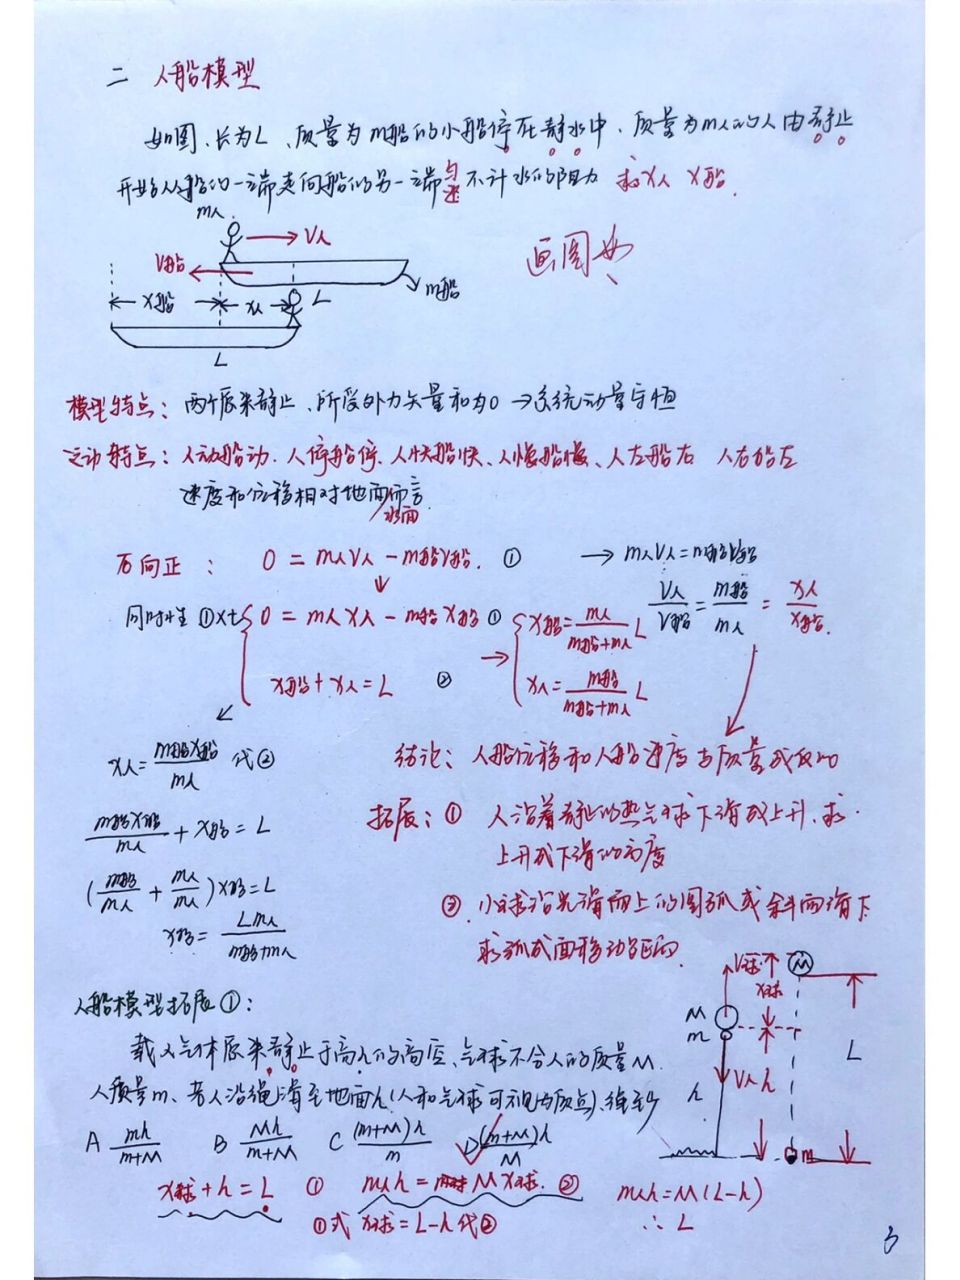 二 人船模型
如图、长为L、质量为m船的小船停在静水中、质量为m人的人由静止
开始从船的一端走向船的另一端 匀速 不计水的阻力 求x人 x船.
m人
V人
画图
V船
m船
x船 x人 L
L
模型特点: 两个原来静止、所受外力矢量和为0 → 系统动量守恒
运动特点: 人动船动、人停船停、人快船快、人慢船慢、人左船右 人右船左
速度和位移相对地面而言
水面
方向正: 0 = m人V人 - m船V船. ① → m人V人 = m船V船
同时性 ①×t 0 = m人x人 - m船x船 ① x船 = m人/(m船+m人) L V人/V船 = m船/m人 = x人/x船.
x船 + x人 = L ② → x人 = m船/(m船+m人) L
x人 = m船x船/m人 代②
结论: 人船位移和人船速度与质量成反比
m船x船/m人 + x船 = L
拓展: ① 人沿着静止的热气球下滑或上升、求
上升或下滑的高度
(m船/m人 + m人/m人)x船 = L
② 小球沿光滑面上的圆弧或斜面滑下
x船 = Lm人/(m船+m人)
求弧或面移动距离
V球 x球 M
人船模型拓展①:
M
m
L
载人气球原来静止于高h的高度、气球不含人的质量M
V人 h
h
人质量m、若人沿绳滑至地面h(人和气球可视为质点)、绳至少
A mh/(m+M) B Mh/(m+M) C (m+M)h/m D (m+M)h/M
m
x球 + h = L ① m人h = M x球. ② m人h = M(L-h)
①式 x球 = L-h 代② ∴ L
3